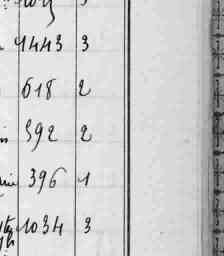 1443 3
618 2
592 2
396 1
1034 3